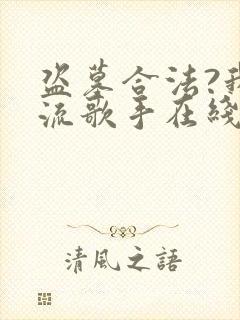 盗墓合法?我
流歌手在綫
清風之語